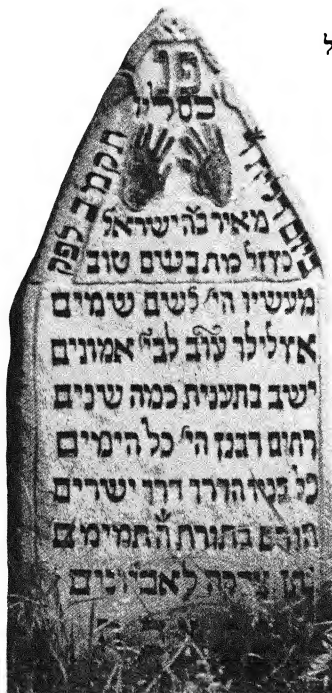 ל
פנ
כסליו
ביום
תקמב לפק
מאיר בה ישראל
זל מת בשם טוב
מעשיו הי' לשם שמים
אמונים
ישב בתענית כמה שנים
רחים רבנן הי' כל הימים
כל הדרך דרך ישרים
בתורת ה' תמימים
נתן צדקה לאביונים